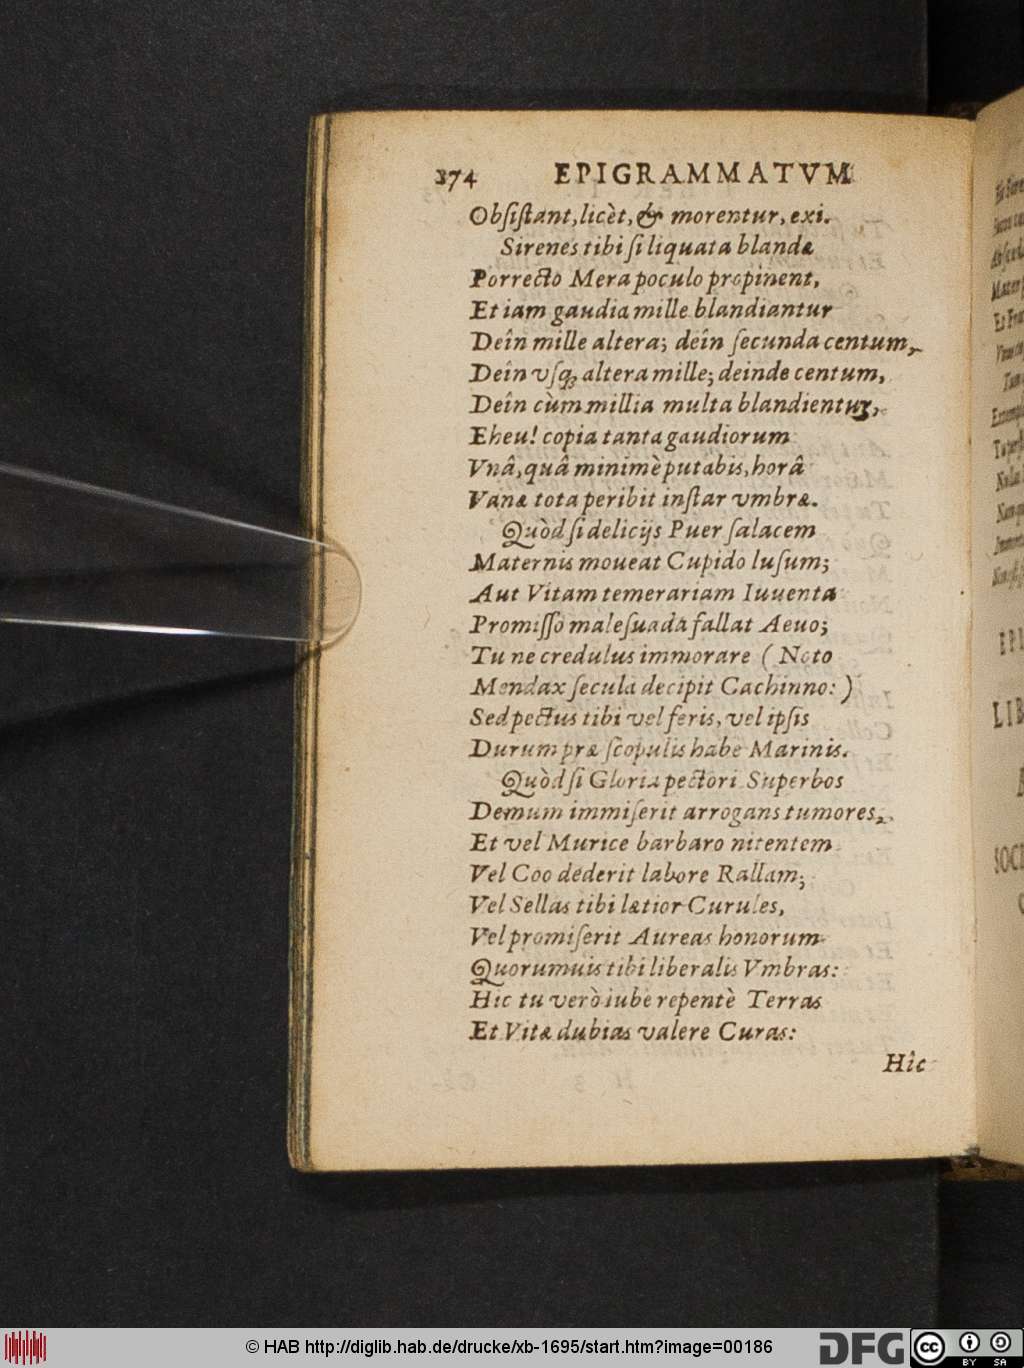 174 EPIGRAMMATVM
Obſiſtant, licèt, & morentur, exi.
Sirenes tibi ſi liquata blandæ
Porrecto Mera poculo propinent,
Et iam gaudia mille blandiantur
Deîn mille altera; deîn ſecunda centum,
Deîn vſq; altera mille; deinde centum,
Deîn cùm millia multa blandientur,
Eheu! copia tanta gaudiorum
Vnâ, quâ minimè putabis, horâ
Vanæ tota peribit inſtar vmbræ.
Quòd ſi delicijs Puer ſalacem
Maternis moueat Cupido luſum;
Aut Vitam temerariam Iuuenta
Promiſſo maleſuada fallat Aeuo;
Tu ne credulus immorare ( Noto
Mendax ſecula decipit Cachinno: )
Sed pectus tibi vel feris, vel ipſis
Durum præ ſcopulis habe Marinis.
Quòd ſi Gloria pectori Superbos
Demum immiſerit arrogans tumores,
Et vel Murice barbaro nitentem
Vel Coo dederit labore Rallam;
Vel Sellas tibi lætior Curules,
Vel promiſerit Aureas honorum
Quorumuis tibi liberalis Vmbras:
Hic tu verò iube repentè Terras
Et Vitæ dubias valere Curas:
Hîc
© HAB http://diglib.hab.de/drucke/xb-1695/start.htm?image=00186
DFG
cc BY SA